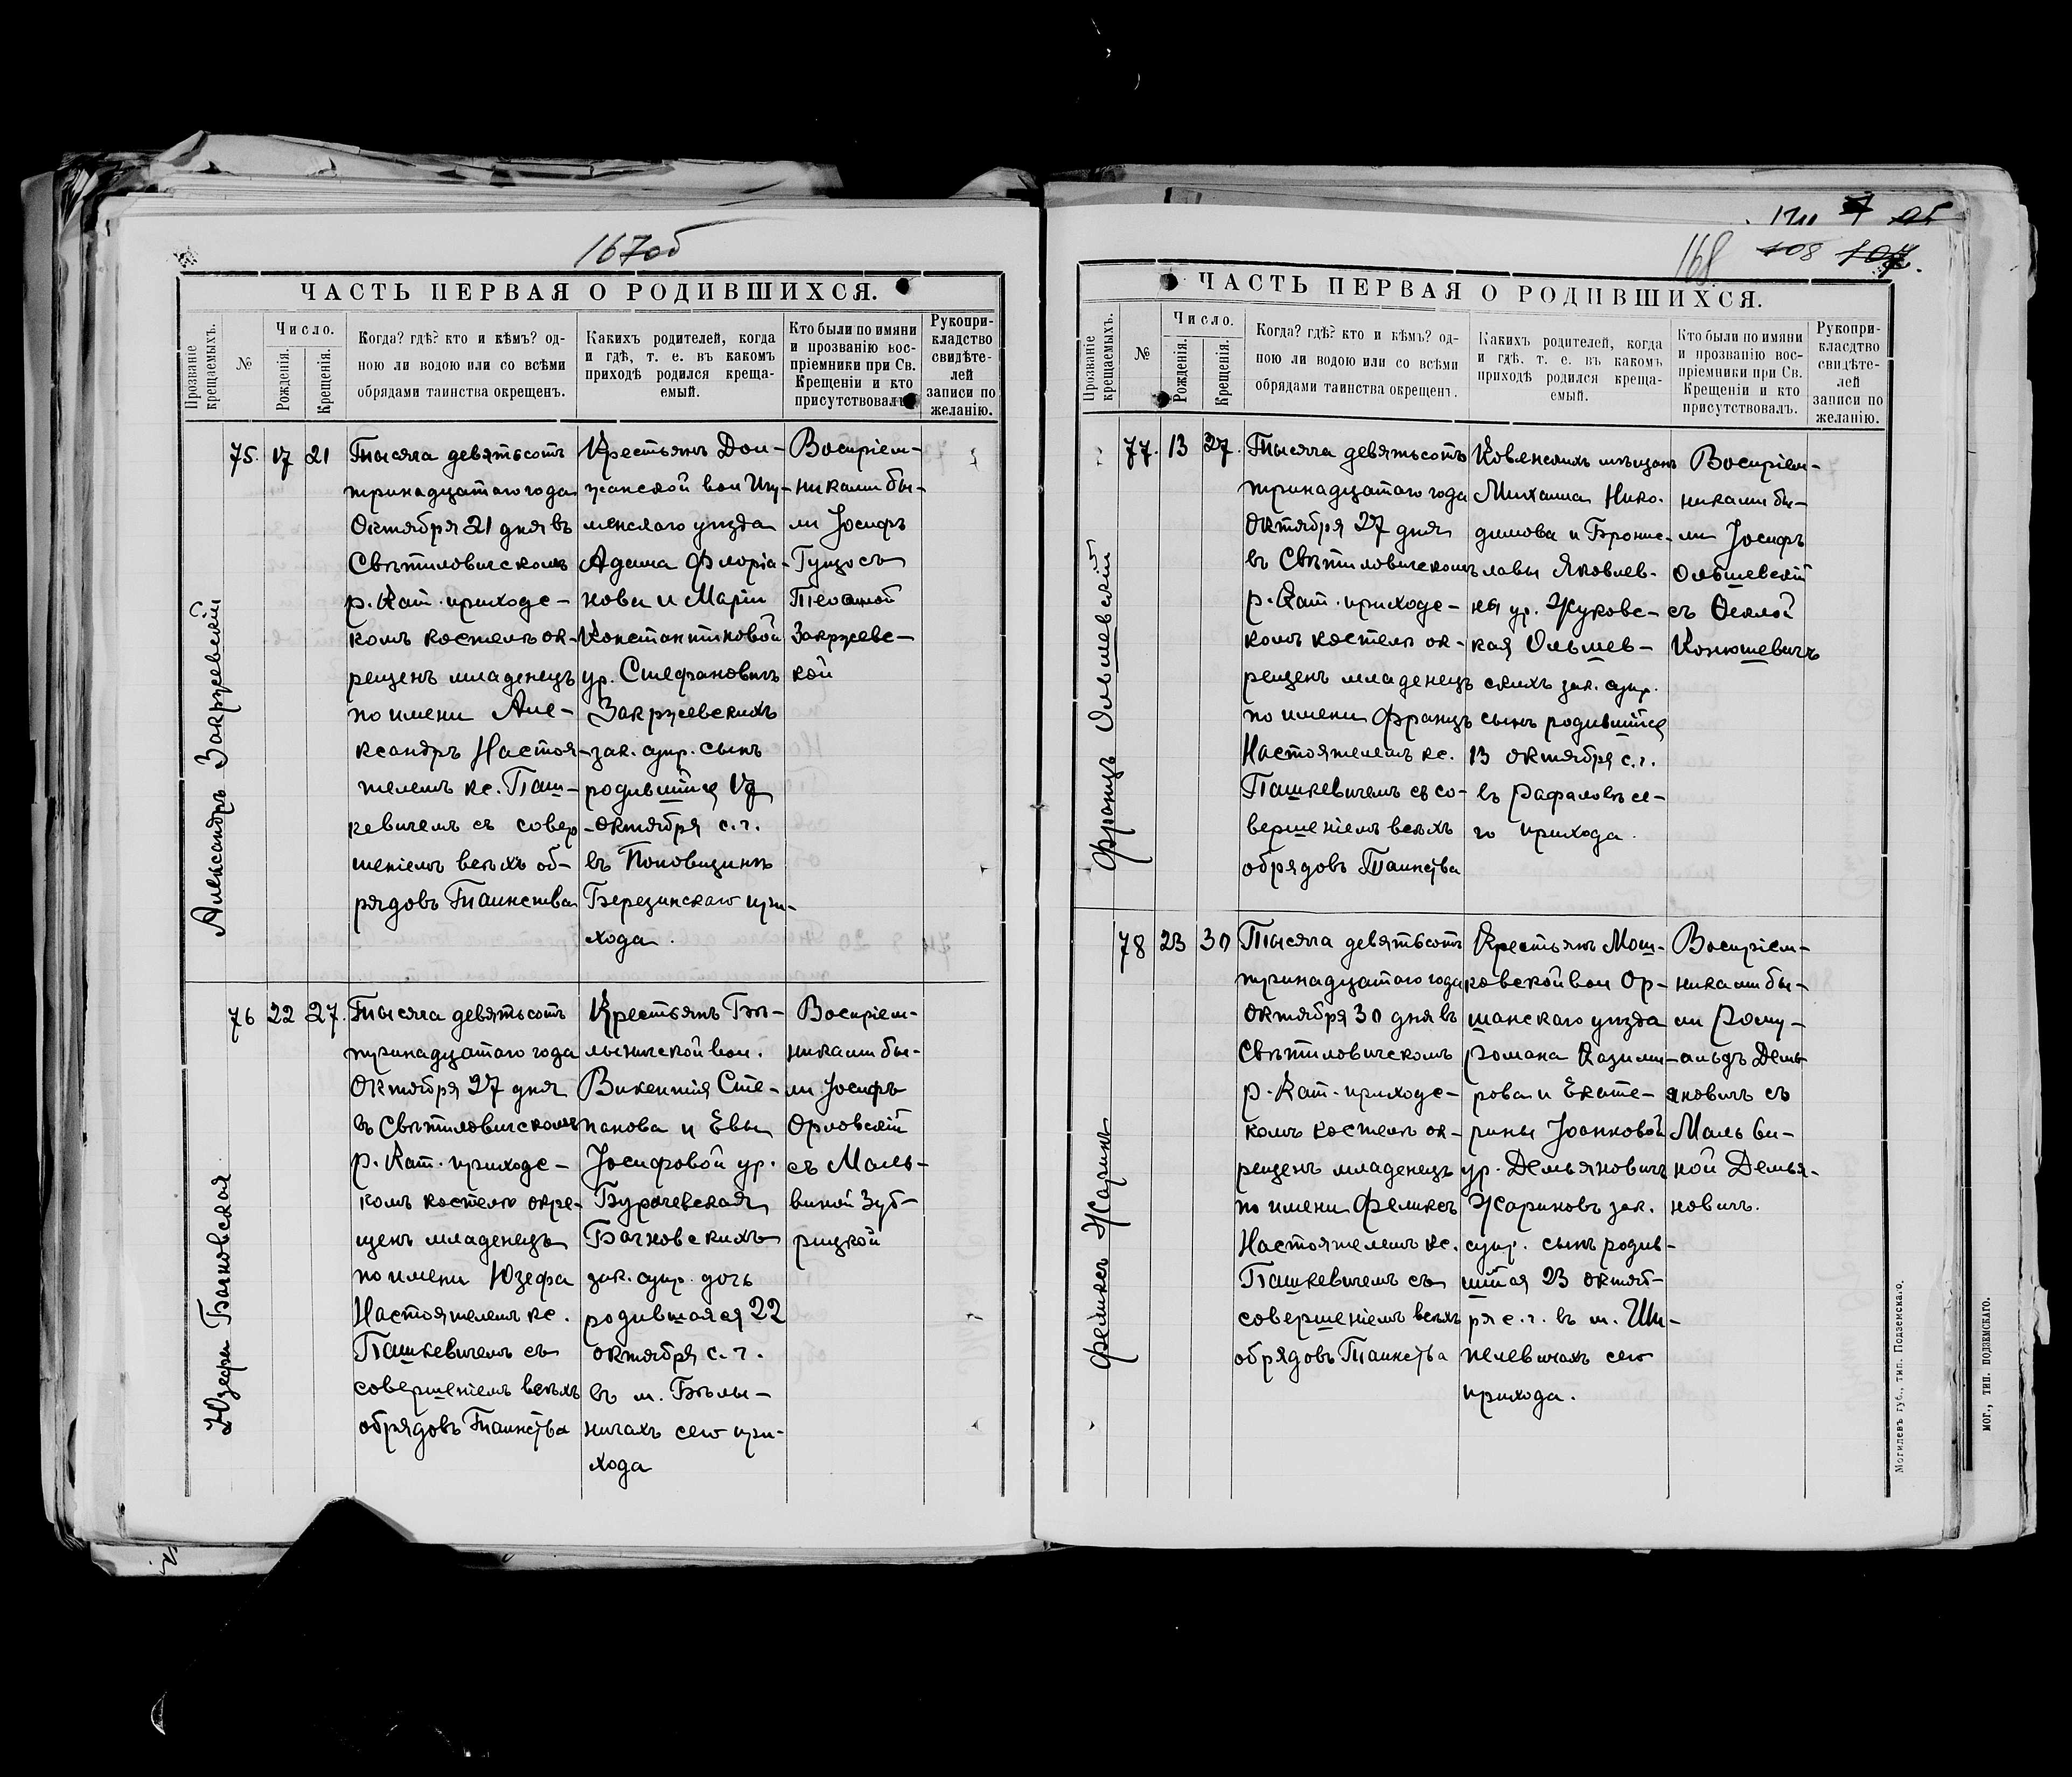 167об
ЧАСТЬ ПЕРВАЯ О РОДИВШИХСЯ.
Прозваніе крещаемыхъ.
№
Число.
Рожденія.
Крещенія.
Когда? гдѣ? кто и кѣмъ? од-
ною ли водою или со всѣми
обрядами таинства окрещенъ.
Какихъ родителей, когда
и гдѣ, т. е. въ какомъ
приходѣ родился креща-
емый.
Кто были по имяни
и прозванію вос-
пріемники при Св.
Крещеніи и кто
присутствовалъ.
Рукопри-
кладство
свидѣте-
лей
записи по
желанію.
Александръ Закржевскій
75. 17 21
Тысяча девятьсотъ
тринадцатаго года
Октября 21 дня въ
Свѣтиловическомъ
р. Кат. приходс-
комъ костелѣ ок-
рещенъ младенецъ
по имени Але-
ксандръ Настоя-
телемъ кс. Паш-
кевичемъ съ совер
шеніемъ всѣхъ об-
рядовъ Таинства
Крестьянъ Дол-
жанской вол Игу-
менскаго уѣзда
Адама Флоріа-
нова и Маріи
Константиновой
ур. Стефановичъ
Закржевскихъ
зак. супр. сынъ
родившійся 17
октября с. г.
въ Поповщинѣ
Березинскаго при-
хода.
Воспріем-
никами бы-
ли Іосифъ
Гуцо съ
Теофилой
Закржевс-
кой
Юзефа Бачковская
76 22 27.
Тысяча девятьсотъ
тринадцатаго года
Октября 27 дня
въ Свѣтиловическомъ
р. Кат. приходс-
комъ костелѣ окре-
щенъ младенецъ
по имени Юзефа
Настоятелемъ кс.
Пашкевичемъ съ
совершеніемъ всѣхъ
обрядовъ Таинства
Крестьянъ Бѣ-
лыничской вол.
Викентія Сте-
панова и Евы
Іосифовой ур.
Бурачевская
Бачковскихъ
зак. супр. дочь
родившаяся 22
октября с. г.
въ м. Бѣлы-
ничахъ сего при-
хода
Воспріем-
никами бы-
ли Іосифъ
Орловскій
съ Маль-
виной Зуб-
рицкой
168 108 107.
ЧАСТЬ ПЕРВАЯ О РОДИВШИХСЯ.
Прозваніе крещаемыхъ.
№
Число.
Рожденія.
Крещенія.
Когда? гдѣ? кто и кѣмъ? од-
ною ли водою или со всѣми
обрядами таинства окрещенъ.
Какихъ родителей, когда
и гдѣ, т. е. въ какомъ
приходѣ родился креща-
емый.
Кто были по имяни
и прозванію вос-
пріемники при Св.
Крещеніи и кто
присутствовалъ.
Рукопри-
класдтво
свидѣте-
лей
записи по
желанію.
Францъ Ольшевскій
77. 13 27.
Тысяча девятьсотъ
тринадцатаго года
Октября 27 дня
въ Свѣтиловическомъ
р. Кат. приходс-
комъ костелѣ ок-
рещенъ младенецъ
по имени Францъ
Настоятелемъ кс.
Пашкевичемъ съ со-
вершеніемъ всѣхъ
обрядовъ Таинства
Ковенскихъ мѣщанъ
Михаила Нико-
димова и Бронис-
лавы Яковлев-
ны ур. Жуковс-
кая Ольшев-
скихъ зак. супр.
сынъ родившійся
13 октября с. г.
въ Рафаловѣ се-
го прихода.
Воспріем-
никами бы-
ли Іосифъ
Ольшевскій
съ Феклой
Конюшевичъ
Феликсъ Жаринъ
78 23 30
Тысяча девятьсотъ
тринадцатаго года
Октября 30 дня въ
Свѣтиловическомъ
р. Кат. приходс-
комъ костелѣ ок-
рещенъ младенецъ
по имени Феликсъ
Настоятелемъ кс.
Пашкевичемъ съ
совершеніемъ всѣхъ
обрядовъ Таинства
Крестьянъ Мош-
ковской вол Ор-
шанскаго уѣзда
Романа Казими-
рова и Екате-
рины Іоанновой
ур. Демьяновичъ
Жариновъ зак.
супр. сынъ родив-
шійся 23 октяб-
ря с. г. въ м. Ше-
пелевичахъ сего
прихода.
Воспріем-
никами бы-
ли Рому-
альдъ Демь
яновичъ съ
Мальви-
ной Демья-
новичъ.
Могилевъ губ., тип. Подземскаго.
МОГ., ТИП. ПОДЗЕМСКАГО.